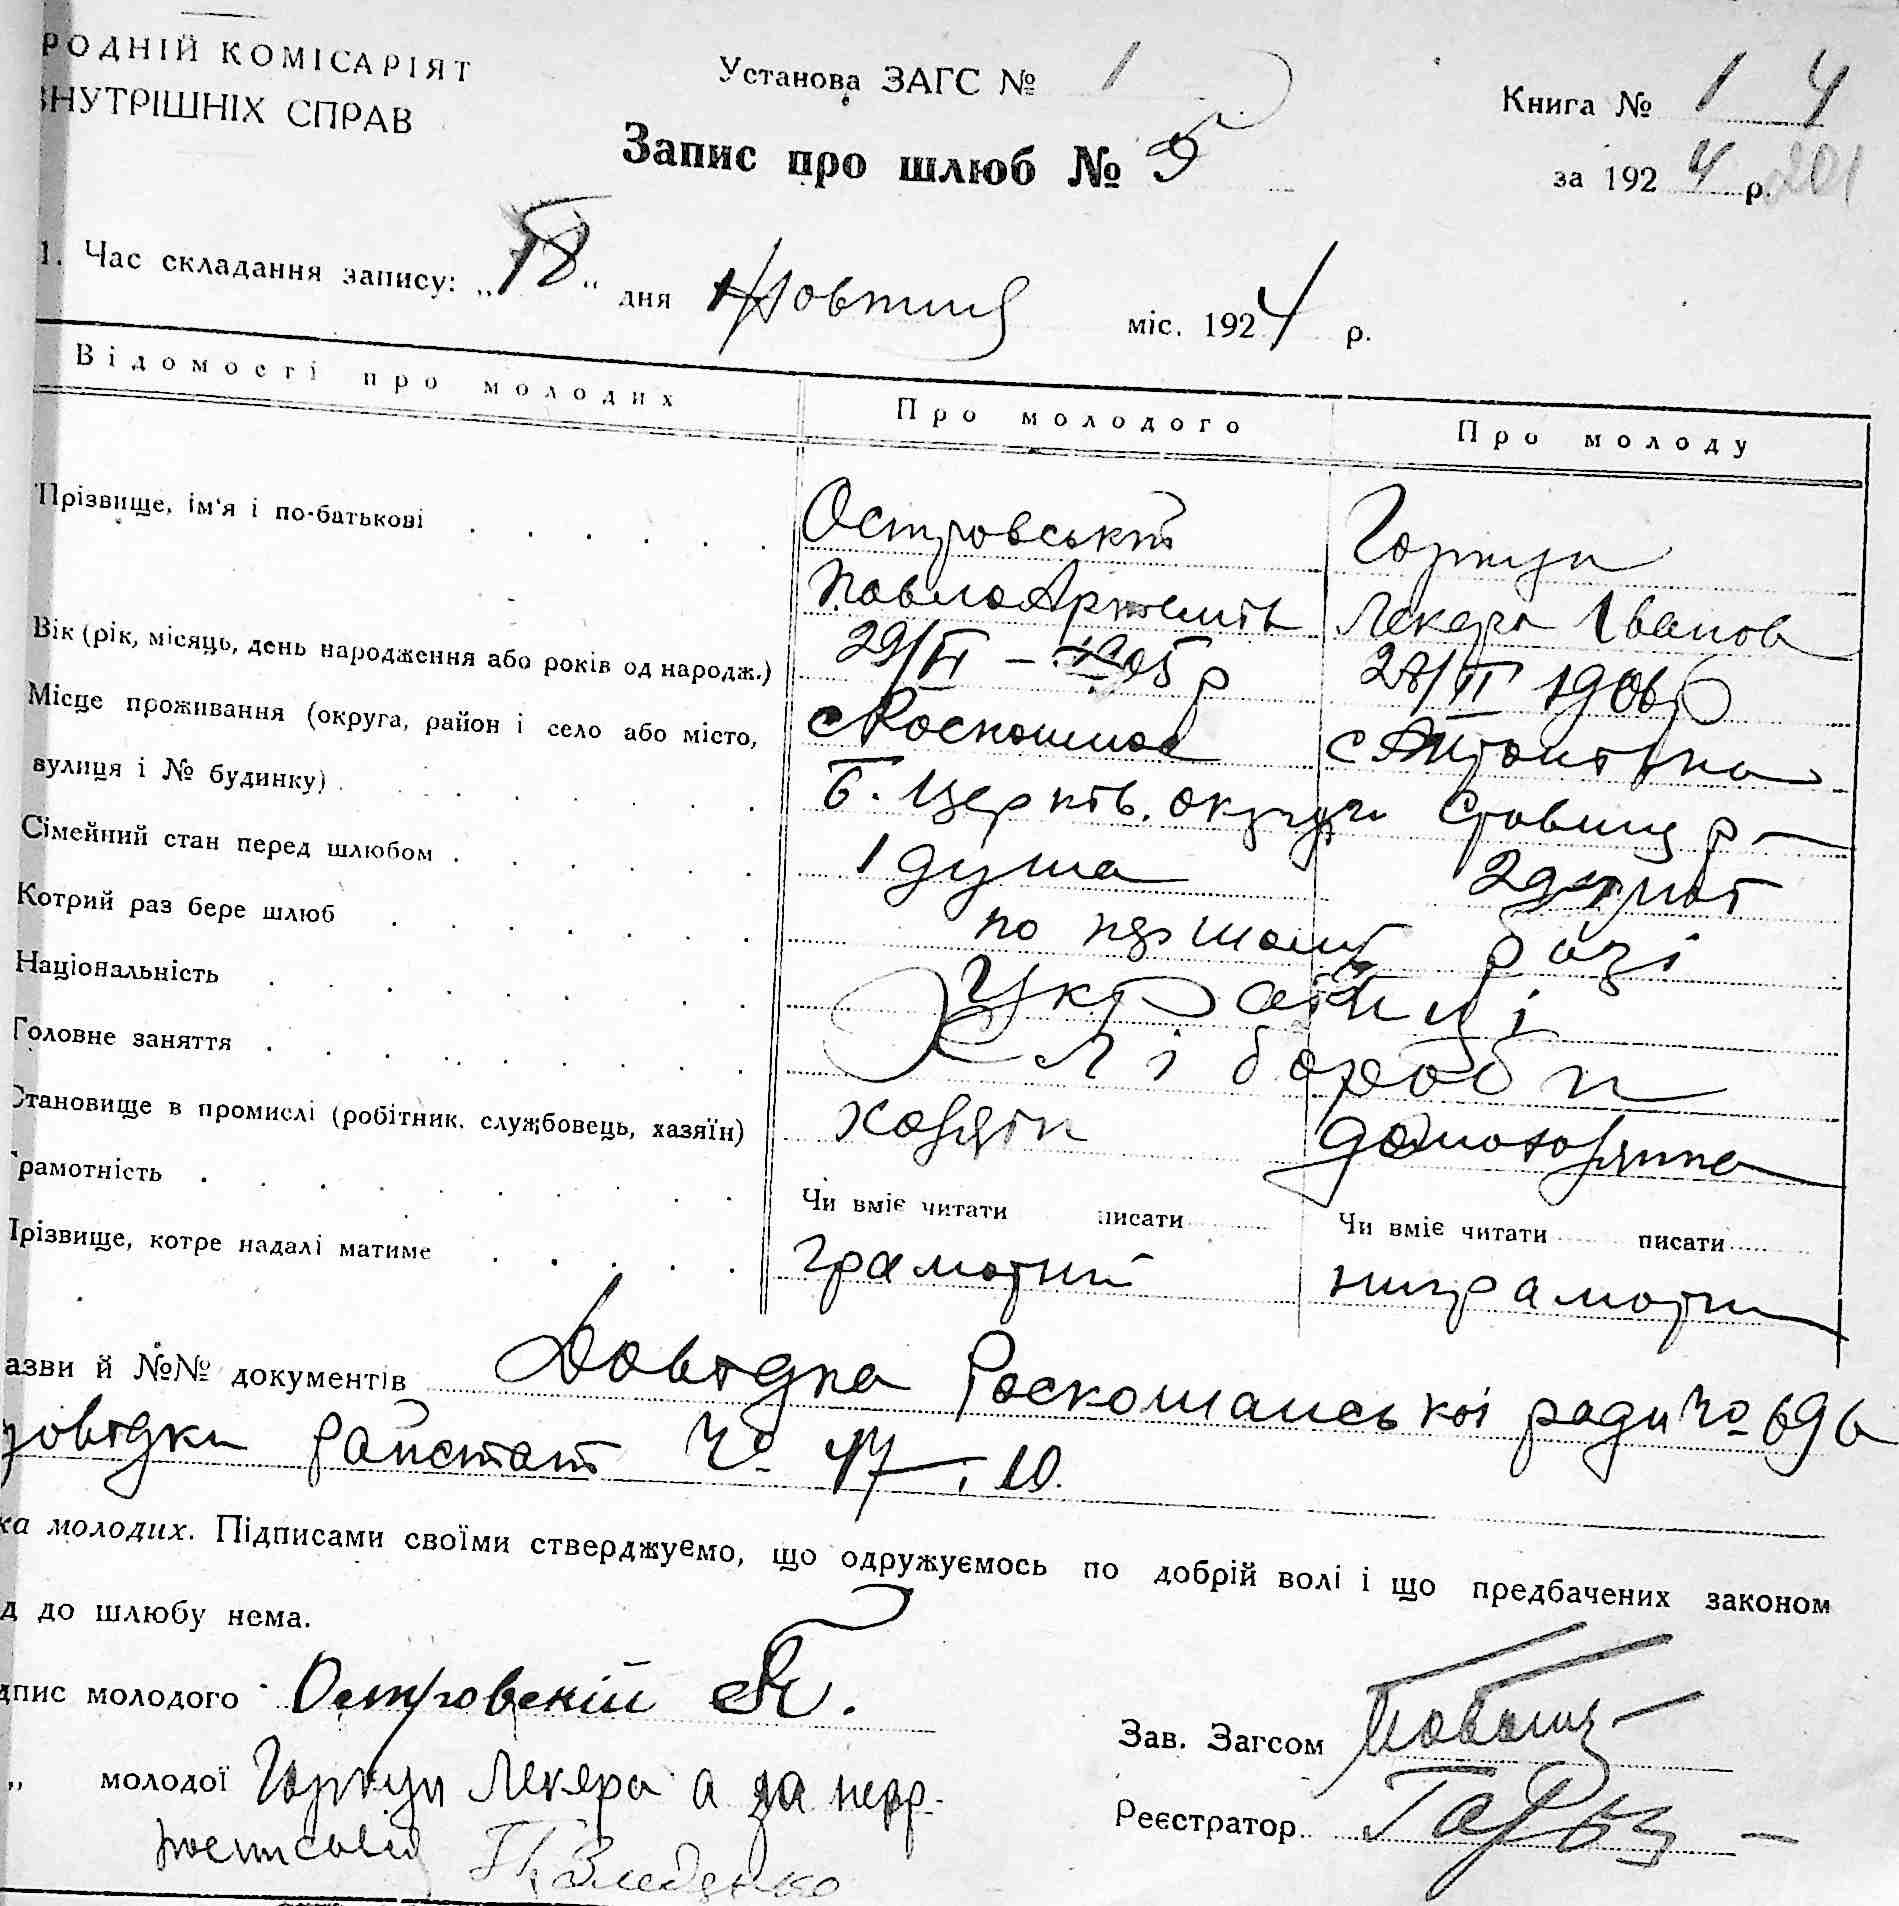 РОДНІЙ КОМІСАРІЯТ
ВНУТРІШНІХ СПРАВ
Установа ЗАГС № 1
Книга № 1 4
Запис про шлюб № 5
за 1924 р. 201
1. Час складання запису: „18“ дня Жовтня міс. 1924 р.
Відомості про молодих
Про молодого
Про молоду
Прізвище, ім'я і по-батькові
Островський
Горкун
Павло Артемів
Лекера Іванов
Вік (рік, місяць, день народження або років од народж.)
29/VI – 1905 р
28/II 1906 р
Місце проживання (округа, район і село або місто, вулиця і № будинку)
с Роскошна
Б. Церків. округи Ставищ р
Сімейний стан перед шлюбом
1 душа
Котрий раз бере шлюб
по першому разі
Національність
Українці
Головне заняття
Хліборобн
Становище в промислі (робітник, службовець, хазяїн)
хазяїн
домохазяйка
Грамотність
Чи вміє читати писати
Чи вміє читати писати
Прізвище, котре надалі матиме
грамотний
ниграмотн
азви й №№ документів Довідка Роскошанської ради № 696
довідки № 47 10.
ка молодих. Підписами своїми стверджуємо, що одружуємось по добрій волі і що предбачених законом
д до шлюбу нема.
дпис молодого Островскій П.
Зав. Загсом
„ молодої Горкун Лекера а за негр-
Реєстратор